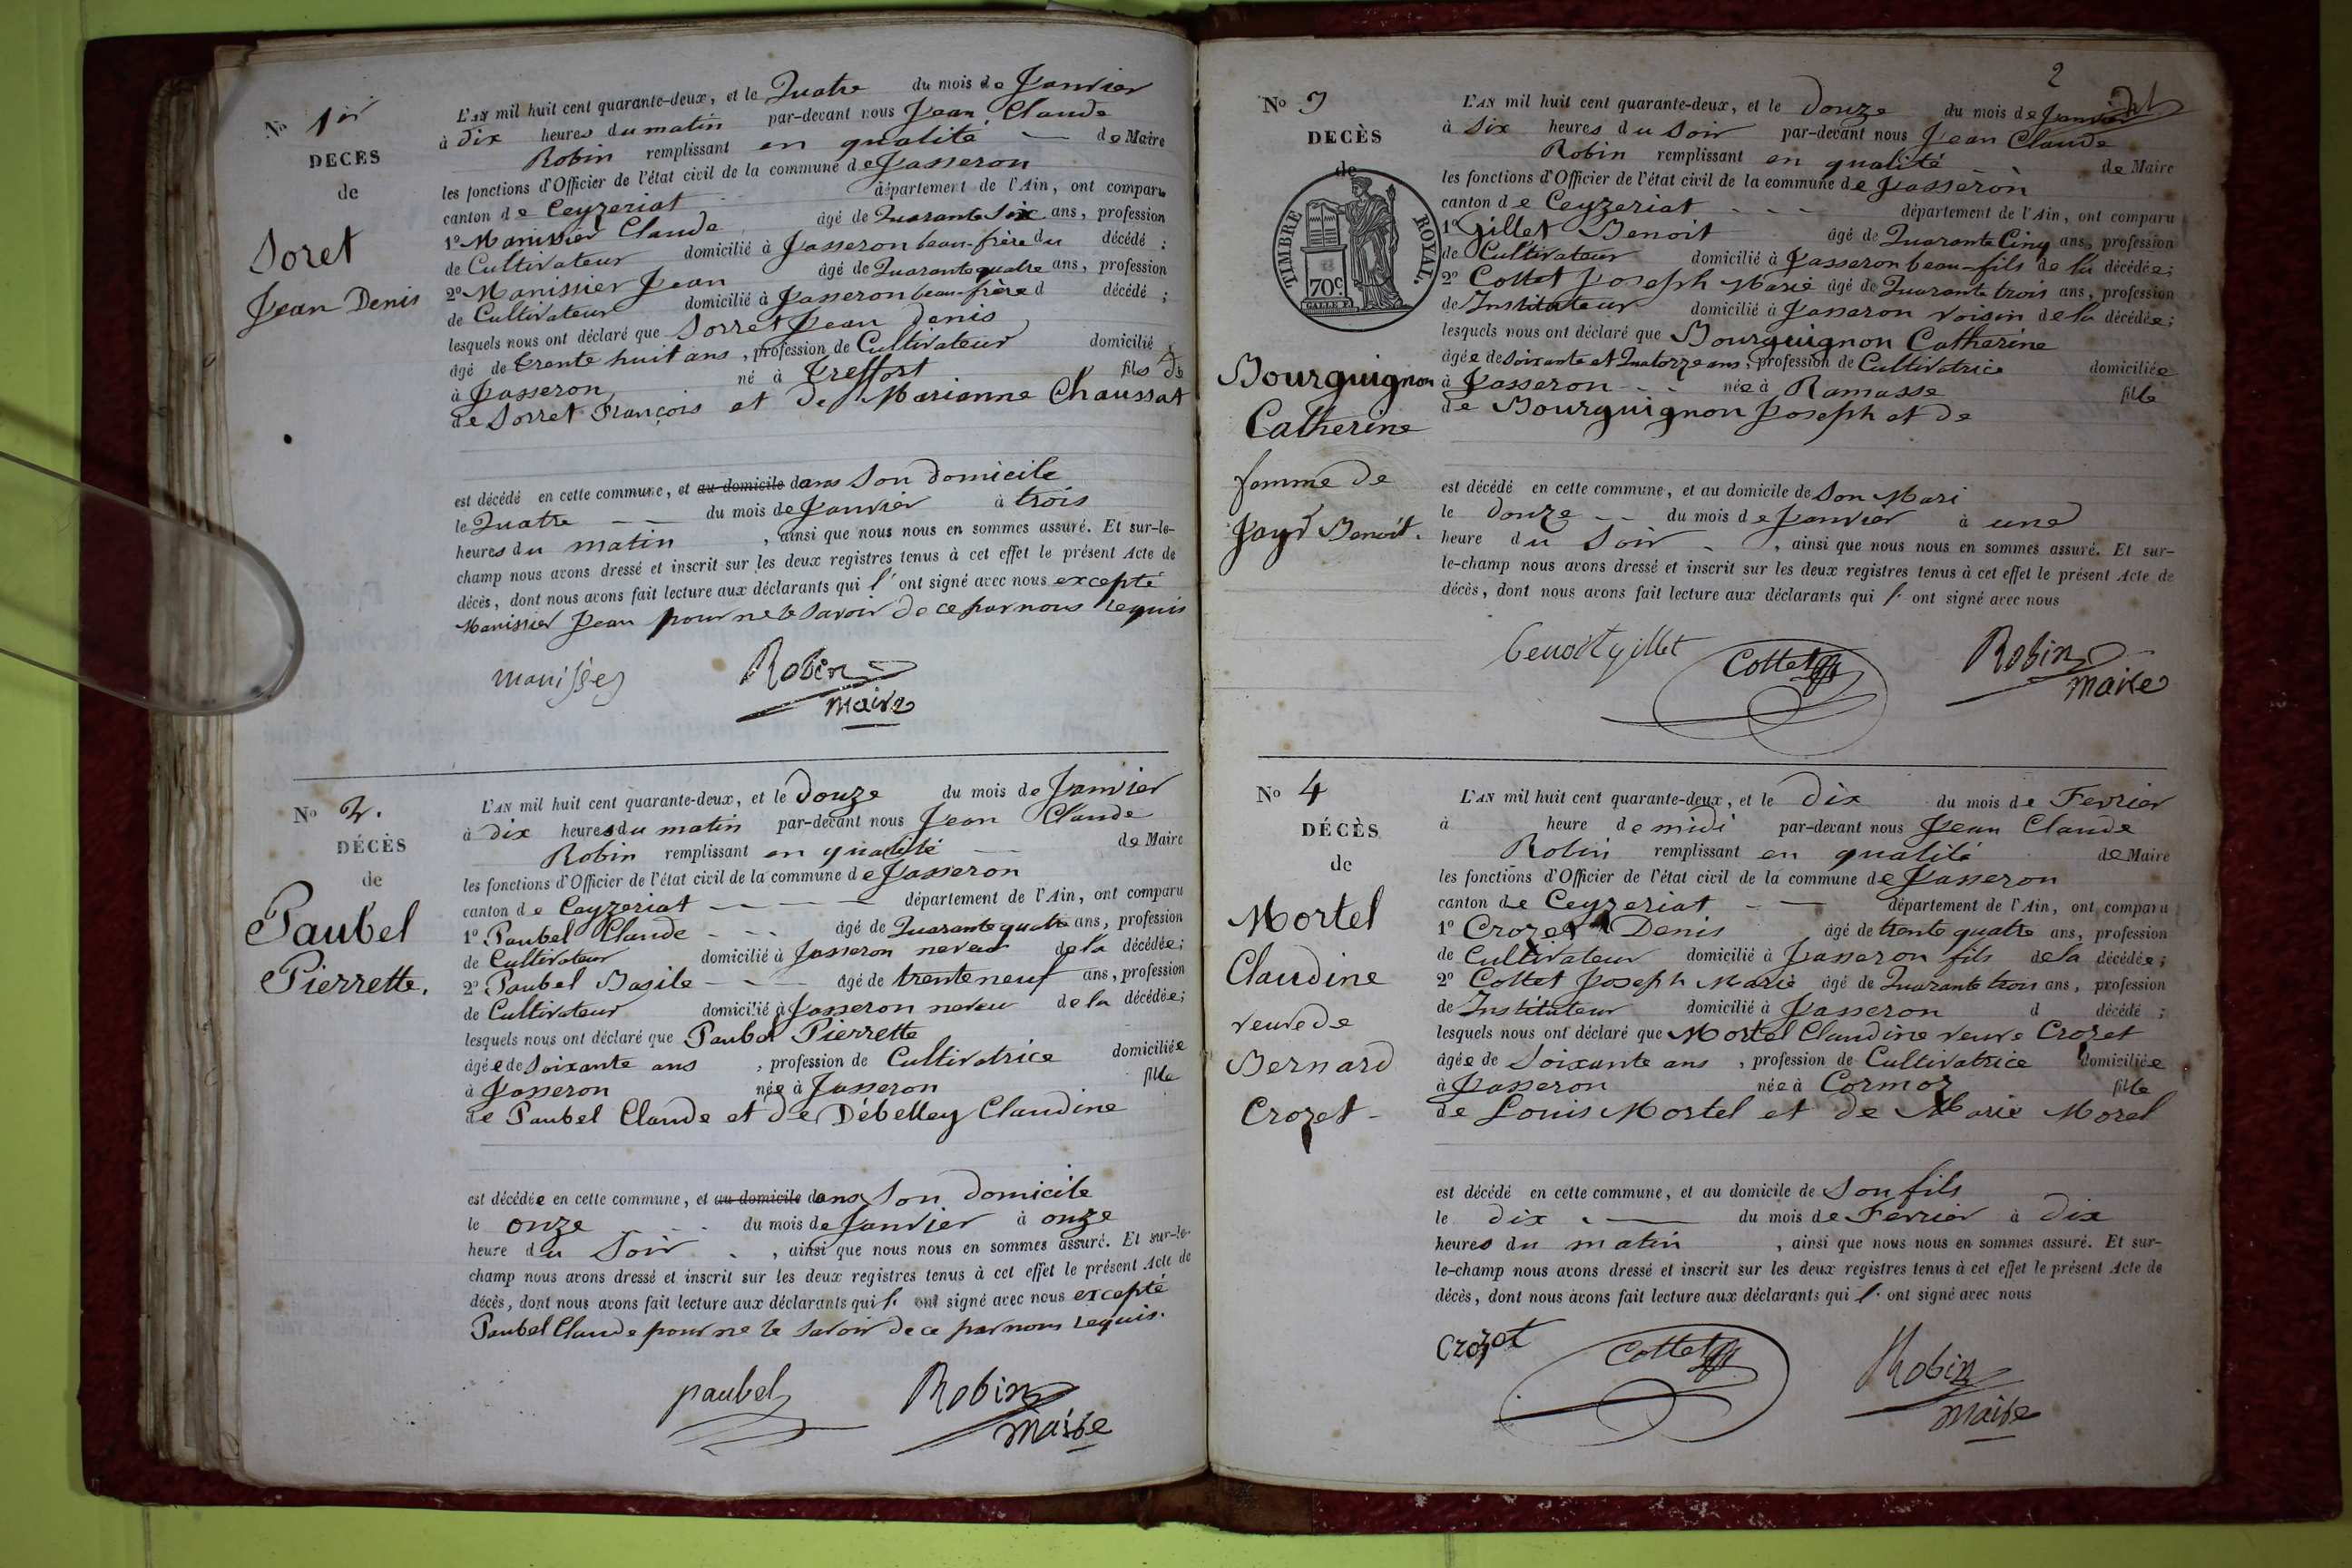 No 1er
DECÈS
de
Soret
Jean Denis
L'AN mil huit cent quarante-deux, et le Quatre du mois de Janvier
à dix heures du matin par-devant nous Jean Claude
Robin remplissant en qualité — de Maire
les fonctions d'Officier de l'état civil de la commune de Jasseron
canton de Ceyzeriat département de l'Ain, ont comparu
1º Manissier Claude âgé de Quarante Six ans, profession
de Cultivateur domicilié à Jasseron beau-frère du décédé ;
2º Manissier Jean âgé de Quarante quatre ans, profession
de Cultivateur domicilié à Jasseron beau-frère d décédé ;
lesquels nous ont déclaré que Sorret Jean Denis
âgé de trente huit ans, profession de Cultivateur domicilié
à Jasseron né à Treffort fils de
de Sorret François et de Marianne Chaussat
est décédé en cette commune, et au domicile dans Son domicile
le Quatre — — du mois de Janvier à trois
heures du matin , ainsi que nous nous en sommes assuré. Et sur-le-
champ nous avons dressé et inscrit sur les deux registres tenus à cet effet le présent Acte de
décès, dont nous avons fait lecture aux déclarants qui l' ont signé avec nous excepté
Manissier Jean pour ne le savoir de ce par nous requis
Robin
maire
No 2.
DÉCÈS
de
Paubel
Pierrette.
L'AN mil huit cent quarante-deux, et le douze du mois de Janvier
à dix heures du matin par-devant nous Jean Claude
Robin remplissant en qualité — de Maire
les fonctions d'Officier de l'état civil de la commune de Jasseron
canton de Ceyzeriat — — — département de l'Ain, ont comparu
1º Paubel Claude - - - âgé de Quarante quatre ans, profession
de Cultivateur domicilié à Jasseron neveu de la décédée ;
2º Paubel Basile - — — âgé de trente neuf ans, profession
de Cultivateur domicilié à Jasseron neveu de la décédée ;
lesquels nous ont déclaré que Paubel Pierrette
âgée de Soixante ans , profession de Cultivatrice domiciliée
à Jasseron née à Jasseron fille
de Paubel Claude et de Débelley Claudine
est décédée en cette commune, et au domicile dans Son domicile
le onze - - du mois de Janvier à onze
heure du Soir - , ainsi que nous nous en sommes assuré. Et sur-le-
champ nous avons dressé et inscrit sur les deux registres tenus à cet effet le présent Acte de
décès, dont nous avons fait lecture aux déclarants qui l' ont signé avec nous excepté
Paubel Claude pour ne le savoir de ce par nous requis.
paubel Robin
maire
2
No 3
DECÈS
de
TIMBRE ROYAL.
70c
Bourguignon
Catherine
femme de
Benoit.
L'AN mil huit cent quarante-deux, et le douze du mois de Janvier
à Six heures du Soir par-devant nous Jean Claude
Robin remplissant en qualité - de Maire
les fonctions d'Officier de l'état civil de la commune de Jasseron
canton de Ceyzeriat - - - département de l'Ain, ont comparu
1º Gillet Benoit âgé de Quarante Cinq ans, profession
de Cultivateur domicilié à Jasseron beau-fils de la décédée ;
2º Cottet Joseph Marie âgé de Quarante trois ans, profession
de Instituteur domicilié à Jasseron voisin de la décédée ;
lesquels nous ont déclaré que Bourguignon Catherine
âgée de Soixante et Quatorze ans, profession de Cultivatrice domiciliée
à Jasseron - - née à Ramasse fille
de Bourguignon Joseph et de
est décédé en cette commune, et au domicile de Son Mari
le douze - - du mois de Janvier à une
heure du Soir - , ainsi que nous nous en sommes assuré. Et sur-
le-champ nous avons dressé et inscrit sur les deux registres tenus à cet effet le présent Acte de
décès, dont nous avons fait lecture aux déclarants qui l' ont signé avec nous
benoit gillet Cottet Robin
maire
No 4
DÉCÈS
de
Mortel
Claudine
veuve de
Bernard
Crozet -
L'AN mil huit cent quarante-deux, et le dix du mois de Fevrier
à heure de midi par-devant nous Jean Claude
Robin remplissant en qualité de Maire
les fonctions d'Officier de l'état civil de la commune de Jasseron
canton de Ceyzeriat - — département de l'Ain, ont comparu
1º Crozet Denis âgé de trente quatre ans, profession
de Cultivateur domicilié à Jasseron fils de la décédée ;
2º Cottet Joseph Marie âgé de Quarante trois ans, profession
de Instituteur domicilié à Jasseron d décédé ;
lesquels nous ont déclaré que Mortel Claudine veuve Crozet
âgée de Soixante ans , profession de Cultivatrice domiciliée
à Jasseron née à Cormoz fille
de Louis Mortel et de Marie Morel
est décédé en cette commune, et au domicile de Son fils
le dix - — du mois de Fevrier à dix
heures du matin , ainsi que nous nous en sommes assuré. Et sur-
le-champ nous avons dressé et inscrit sur les deux registres tenus à cet effet le présent Acte de
décès, dont nous avons fait lecture aux déclarants qui l' ont signé avec nous
Crozet Cottet Robin
maire